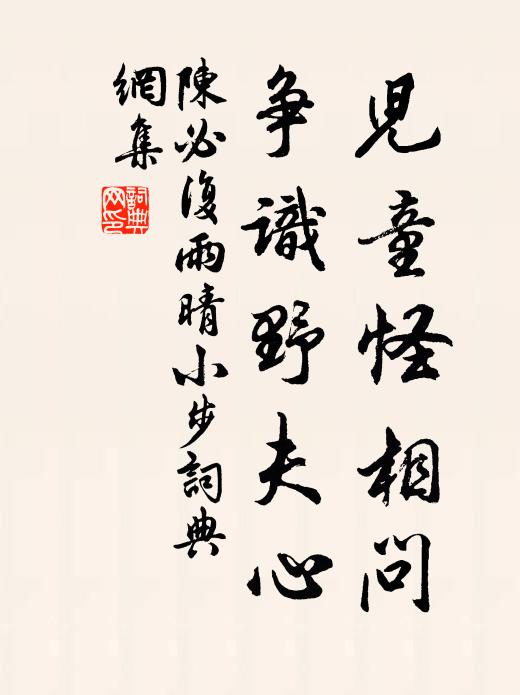 兒童怪相問
争識野夫心
陳必復雨晴小步詞典
網集
詞典
网印